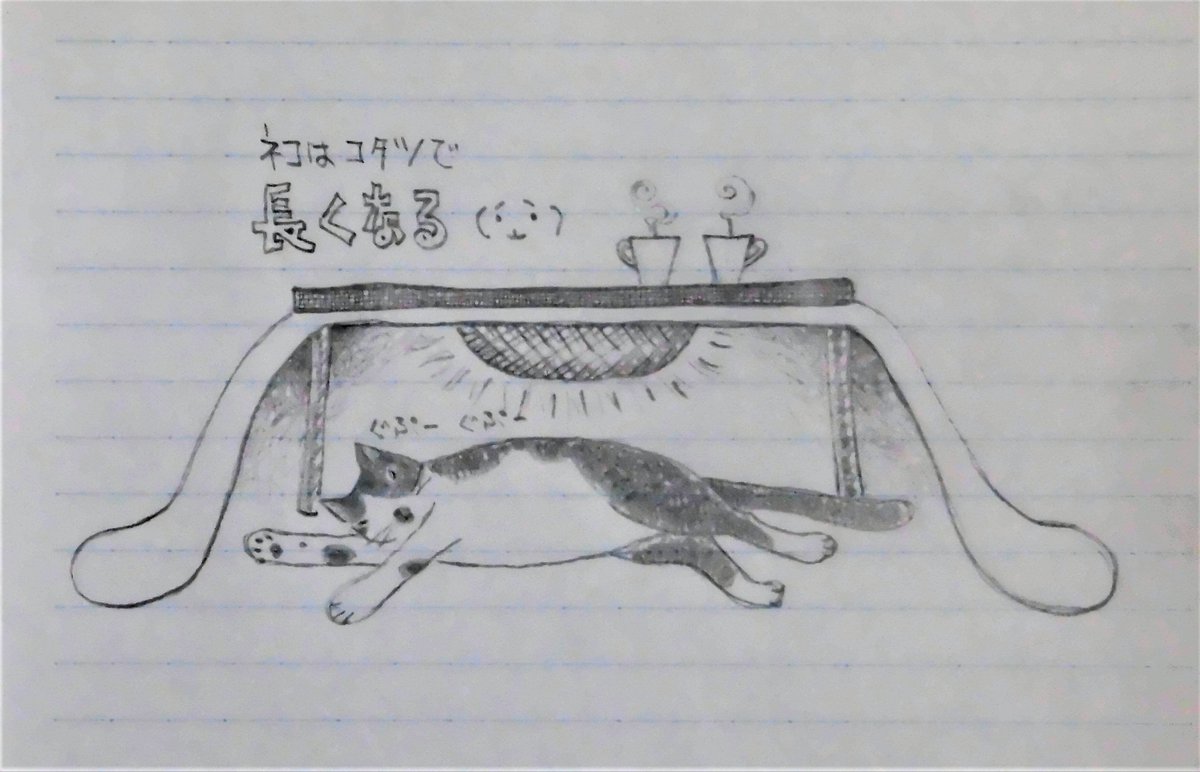 ネコはコタツで
長くなる
ぐぷー ぐぷー